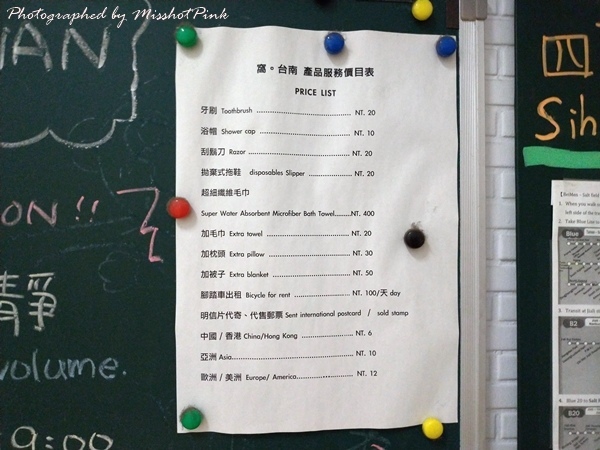 Photographed by MisshotPink
WAN
窩。台南 產品服務價目表
PRICE LIST
牙刷 Toothbrush ........ NT. 20
浴帽 Shower cap ........ NT. 10
刮鬍刀 Razor ........ NT. 20
拋棄式拖鞋 disposables Slipper ........ NT. 20
超細纖維毛巾
Super Water Absorbent Microfiber Bath Towel........NT. 400
加毛巾 Extra towel ........ NT. 20
加枕頭 Extra pillow ........ NT. 30
加被子 Extra blanket ........ NT. 50
腳踏車出租 Bicycle for rent ........ NT. 100/天 day
明信片代寄、代售郵票 Sent international postcard / sold stamp
中國 / 香港 China/Hong Kong ........ NT. 6
亞洲 Asia........ NT. 10
歐洲 / 美洲 Europe/ America........ NT. 12
ON!!
靜
volume.
9:00
四
Sih
1. When you walk
left side of the
2. Take Blue Line to
Blue
B2
B20